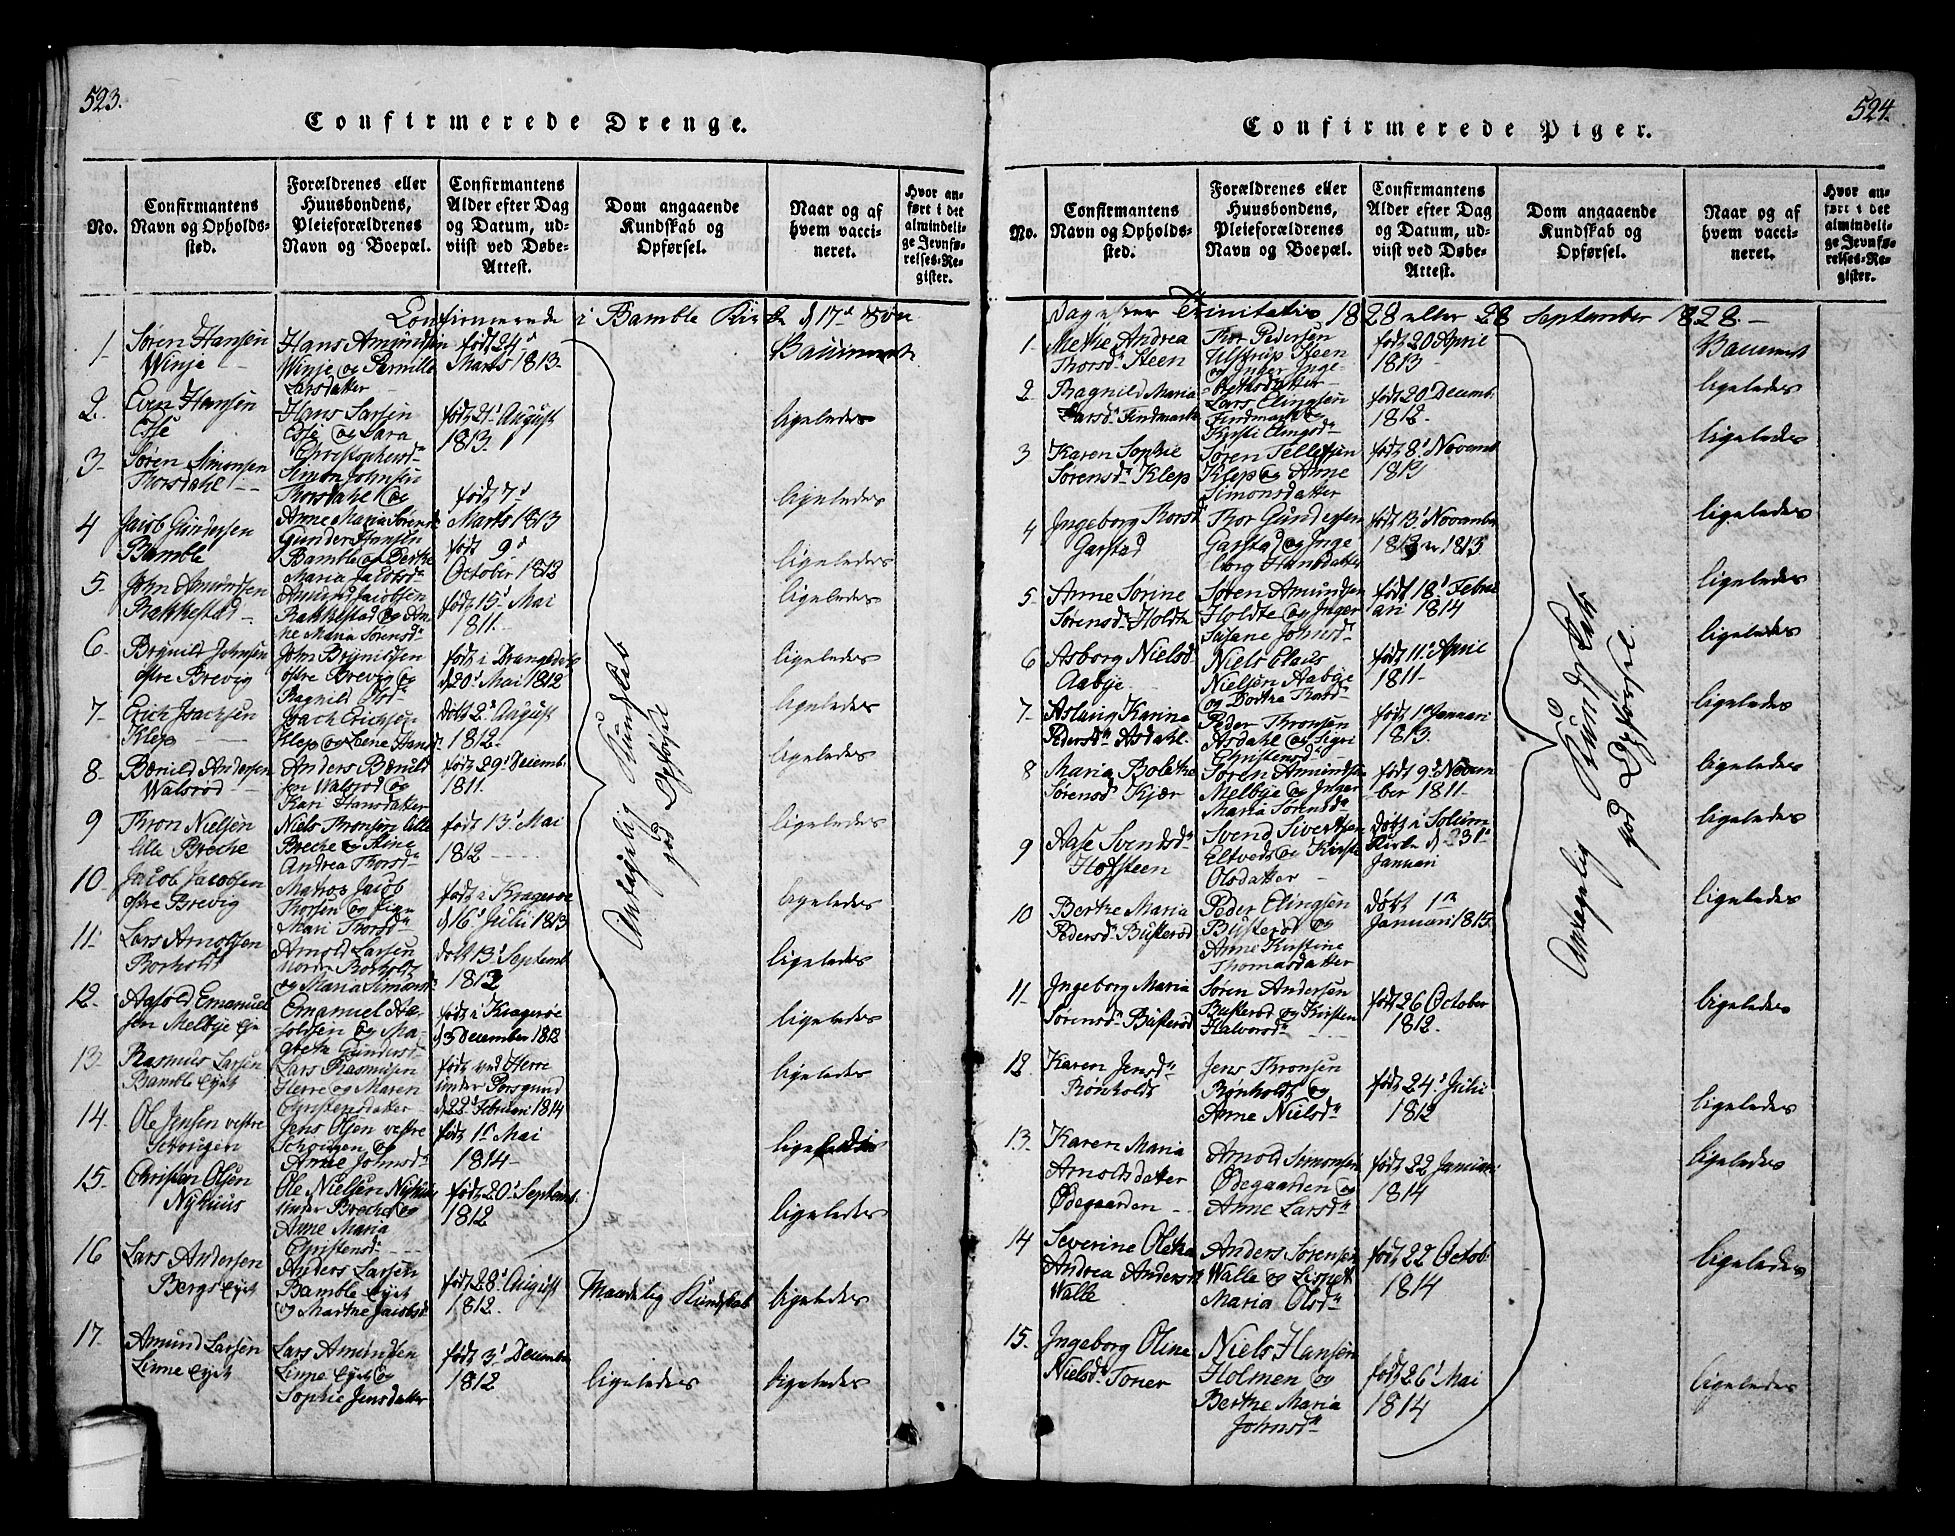 523.
Confirmerede Drenge.
No.
Confirmantens
Navn og Opholds-
sted.
Forældrenes eller
Huusbondens,
Pleieforældrenes
Navn og Boepæl.
Confirmantens
Alder efter Dag
og Datum, ud-
viist ved Døbe-
Attest.
Dom angaaende
Kundskab og
Opførsel.
Naar og af
hvem vacci-
neret.
Hvor an-
ført i det
almindeli-
ge Jevnfø-
relses-Re-
gister.
Confirmerede i Bamble Kirke d 17de Søn
1 Søren Hansen
Winje
Hans Amundsen
Winje og Pernille
Larsdatter
født 24d
Marts 1813
Vaccineret
2. Even Hansen
Hans Larsen
og Sara
Christophersd
født 21d August
1813
ligeledes
3 Søren Simonsen
Thorsdahl
Simon Johnsen
Thorsdahl og
Anne Maria Sørensd
født 7d
Marts 1813
ligeledes
4 Jacob Gundersen
Bamble
Gunder Hansen
Bamble og Berthe
Maria Jacobsd
født 9d
October 1812
ligeledes
5 John Amundsen
Rakkestad
Amund Jacobsen
Rakkestad og An-
ne Maria Sørensd
født 15d Mai
1811
ligeledes
6 Brynild Johnsen
østre Brevig
John Brynildsen
østre Brevig og
Ragnild Olsd
født i Drangedal
d 20d Mai 1812
ligeledes
7 Erich Joachsen
Klep
Joach Erichsen
Klep og Lene Hansd
døbt 2d August
1812
ligeledes
8 Børuld Andersen
Walsrød
Anders Børuld
sen Walsrød og
Kari Hansdatter
født 29d Decemb.
1811
ligeledes
9 Thron Nielsen
lille Breche
Niels Thronsen lille
Breche og Stine
Andrea Thorsd
født 13d Mai
1812
ligeledes
10 Jacob Jacobsen
østre Brevig
Matros Jacob
Thorsen og
Mari Thorsd
født i Kragerøe
d 16d Julii 1813
ligeledes
11 Lars Arnoldsen
Borholt
Arnold Larsen
Nordr Borholt
og Maria Simonsd
døbt 13d Septemb
1812
ligeledes
12 Emanuel
sen Melbye Ejet
Emanuel
og Ma-
grethe Gundersd
født i Kragerøe
d 3 December 1812
ligeledes
13 Rasmus Larsen
Bamble Ejet
Lars Rasmusen
Herre og Maren
Christensdatter
født ved Herre
under Porsgrund
d 22d Februari 1814
ligeledes
14 Ole Jensen vestre
Schougen
Jens Olsen vestre
Schougen og
Anne Johnsd
født 1d Mai
1814
ligeledes
15 Christian Olsen
Nyhuus
Ole Nielsen Nyhuus
under Breche og
Anne Maria
Christensd
født 20d Septemb.
1812
ligeledes
Antagelig Kundskab
god Opførsel
16 Lars Andersen
Bergs Ejet
Anders Larsen
Bamble Ejet
og Marthe Jacobsd
født 28d August
1812
Maadelig Kundskab
ligeledes
17. Amund Larsen
Linne Ejet
Lars Amundsen
Linne Ejet og
Sophie Jensdatter
født 3d Decemb
1812
ligeledes
ligeledes
524.
Confirmerede Piger.
No.
Confirmantens
Navn og Opholds-
sted.
Forældrenes eller
Huusbondens,
Pleieforældrenes
Navn og Boepæl.
Confirmantens
Alder efter Dag
og Datum, ud-
viist ved Døbe-
Attest.
Dom angaaende
Kundskab og
Opførsel.
Naar og af
hvem vacci-
neret.
Hvor an-
ført i det
almindeli-
ge Jevnfø-
relses-Re-
gister.
Dag efter Trinitatis 1828 eller 28 September 1828.
1 Methe Andrea
Thorsd Steen
Thor Pedersen
Ulstrup Steen
og Inger Inge-
borgsdatter
født 20 April
1813
Vaccineret
2 Ragnild Maria
Larsd Findmark
Lars Elingsen
Findmark og
Kirsti Elingsd
født 20 Decemb.
1812
ligeledes
3 Karen Sophie
Sørensd Klep
Søren Tellefsen
Klep og Anne
Simonsdatter
født 8d Novemb
1813
ligeledes
4 Ingeborg Thorsd
Garstad
Thor Gundersen
Garstad og Inge
borg Hansdatter
født 13d Novemb
1813
ligeledes
5 Anne Sørine
Sørensd Holdte
Søren Amundsen
Holdte og Inger
Susane Johnsd
født 18d Febru
ari 1814
ligeledes
6 Asborg Nielsd
Aabye
Niels Claus
Nielsen Aabye
og Dorthe Thorsd
født 11d April
1811
ligeledes
7 Aslaug Karina
Pedersd Asdahl
Peder Thronsen
Asdahl og Sigri
Christensd
født 1 Januari
1813
ligeledes
8 Maria Bolethe
Sørensd Kjær
Søren Amundsen
Melbye og Inger
Maria Sørensd
født 9d Novem
ber 1811
ligeledes
9 Aase Svendsd
Hofsteen
Svend Sivertsen
Eltved og Kirsti
Olsdatter
døbt i Solum
Kirke d 23d
Januari
ligeledes
10 Berthe Maria
Pedersd Busterød
Peder Elingsen
Busterød og
Anne Kirstine
Thomasdatter
døbt 1
Januari 1815
ligeledes
11 Ingeborg Maria
Sørensd Busterød
Søren Andersen
Busterød og Kirsten
Halvorsd
født 26 October
1812
ligeledes
12 Karen Jensd
Rønholdt
Jens Thronsen
Rønholdt og
Anne Nielsd
født 24d Julii
1812
ligeledes
13 Karen Maria
Arnoldsdatter
Ødegaarden
Arnold Simonsen
Ødegaarden og
Anne Larsd
født 22 Januari
1814
ligeledes
14 Severine Olethe
Andrea Andersd
Walle
Anders Sørensen
Walle og Lisbet
Maria Olsd
født 22 Octob.
1814
ligeledes
15. Ingeborg Oline
Nielsd Toner
Niels Hansen
Holmen og
Berthe Maria
Johnsd
født 26d Mai
1814
ligeledes
Antagelig Kundskab
god Opførsel